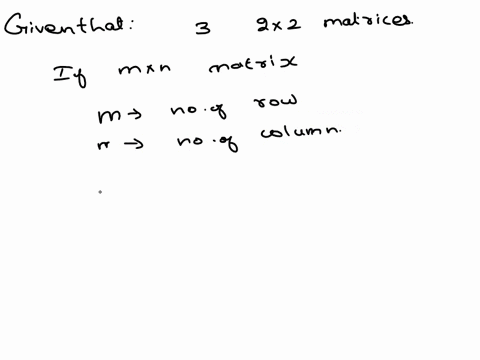 Given that: 3 2×2 matrices.
If m×n matrix
m → no. of row
n → no. of column.